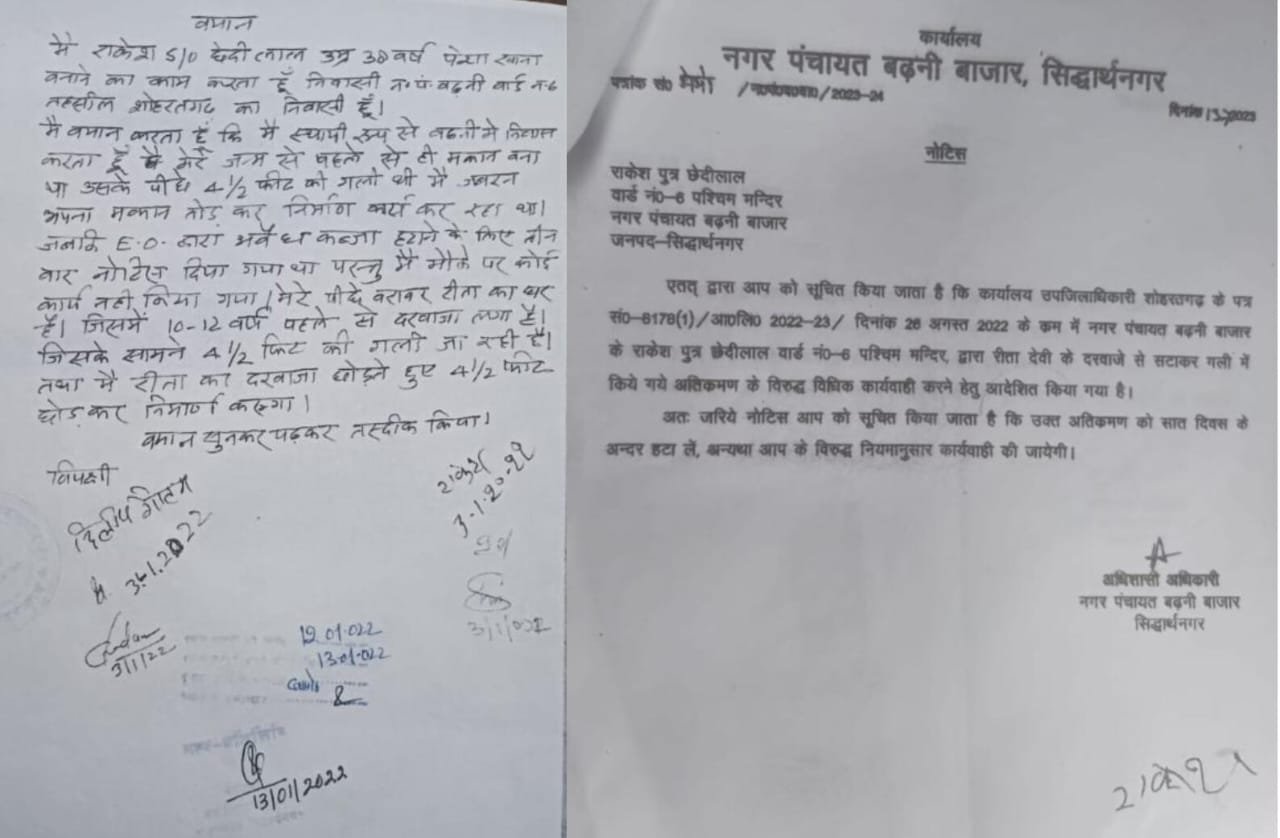 बयान
मै राकेश S/O छेदी लाल उम्र 38 वर्ष पेशा खाना
बनाने का काम करता हूँ निवासी न०पं०बढ़नी वार्ड न०6
तहसील शोहरतगढ का निवासी हूँ।
मै बयान करता हूँ कि मै स्थायी रूप से बढ़नी मे निवास
करता हूँ मेरे जन्म से पहले से ही मकान बना
था उसके पीछे 4½ फीट की गली थी मै जबरन
अपना मकान तोड़ कर निर्माण कार्य कर रहा था।
जबकि E.O. द्वारा अवैध कब्जा हटाने के लिए तीन
बार नोटिस दिया गया था परन्तु मै मौके पर कोई
कार्य नही किया गया। मेरे पीछे बराबर रीता का घर
है। जिसमें 10-12 वर्ष पहले से दरवाजा लगा है।
जिसके सामने 4½ फिट की गली जा रही है।
तथा मै रीता का दरवाजा छोड़ते हुए 4½ फीट
छोड़ कर निमार्ण करूगा।
बयान सुनकर पढ़कर तस्दीक किया।
विपक्षी
दिलीप गौतम
3.1.2022
3/1/22
राकेश
3.1.2022
3/1/022
12.01.022
13.01.022
13/01/2022
कार्यालय
नगर पंचायत बढ़नी बाजार, सिद्धार्थनगर
पत्रांक सं० मेमो /न०पं०ब०बा०/2023-24
दिनांक 2023
नोटिस
राकेश पुत्र छेदीलाल
वार्ड नं०-6 पश्चिम मन्दिर
नगर पंचायत बढ़नी बाजार
जनपद-सिद्धार्थनगर
एतत् द्वारा आप को सूचित किया जाता है कि कार्यालय उपजिलाधिकारी शोहरतगढ़ के पत्र
सं०-6178(1)/आ०लि० 2022-23/ दिनांक 26 अगस्त 2022 के कम में नगर पंचायत बढ़नी बाजार
के राकेश पुत्र छेदीलाल वार्ड नं०-6 पश्चिम मन्दिर, द्वारा रीता देवी के दरवाजे से सटाकर गली में
किये गये अतिकमण के विरुद्ध विधिक कार्यवाही करने हेतु आदेशित किया गया है।
अतः जरिये नोटिस आप को सूचित किया जाता है कि उक्त अतिकमण को सात दिवस के
अन्दर हटा लें, अन्यथा आप के विरुद्ध नियमानुसार कार्यवाही की जायेगी।
अधिशासी अधिकारी
नगर पंचायत बढ़नी बाजार
सिद्धार्थनगर
राकेश